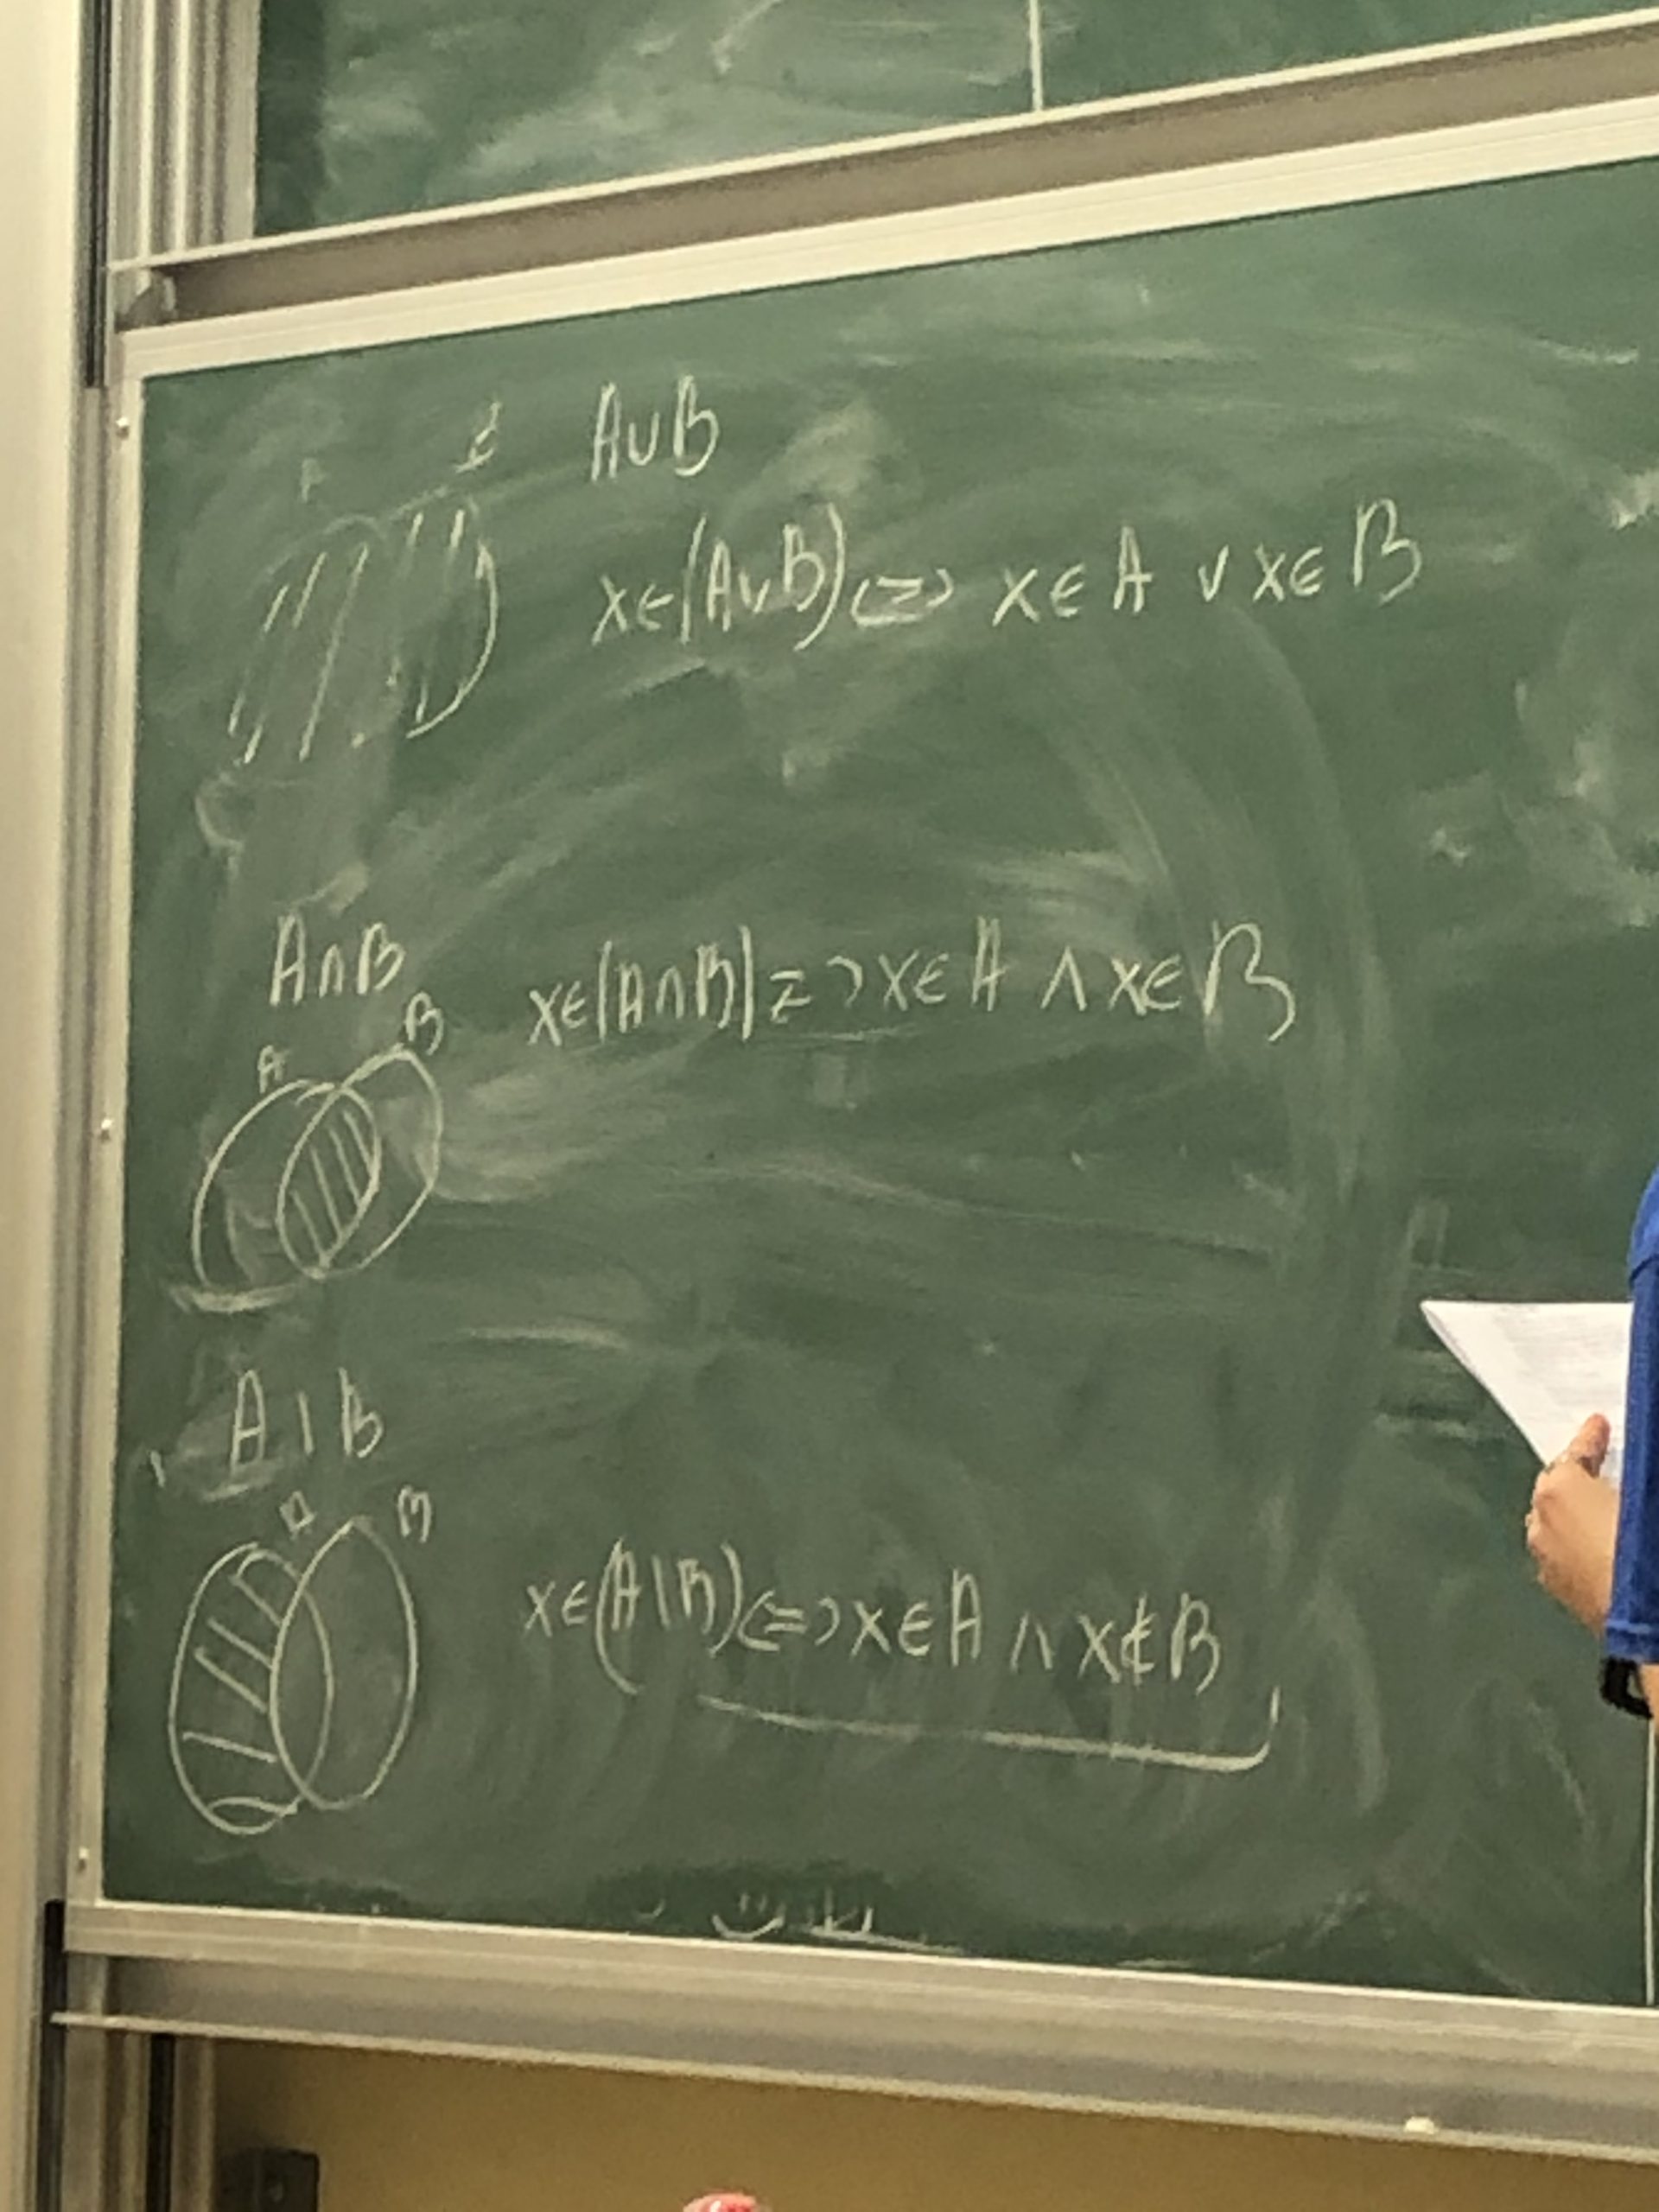 A B A∪B
x∈(A∪B) <=> x∈A ∨ x∈B
A∩B x∈(A∩B) <=> x∈A ∧ x∈B
A B
A \ B
A B
x∈(A\B) <=> x∈A ∧ x∉B